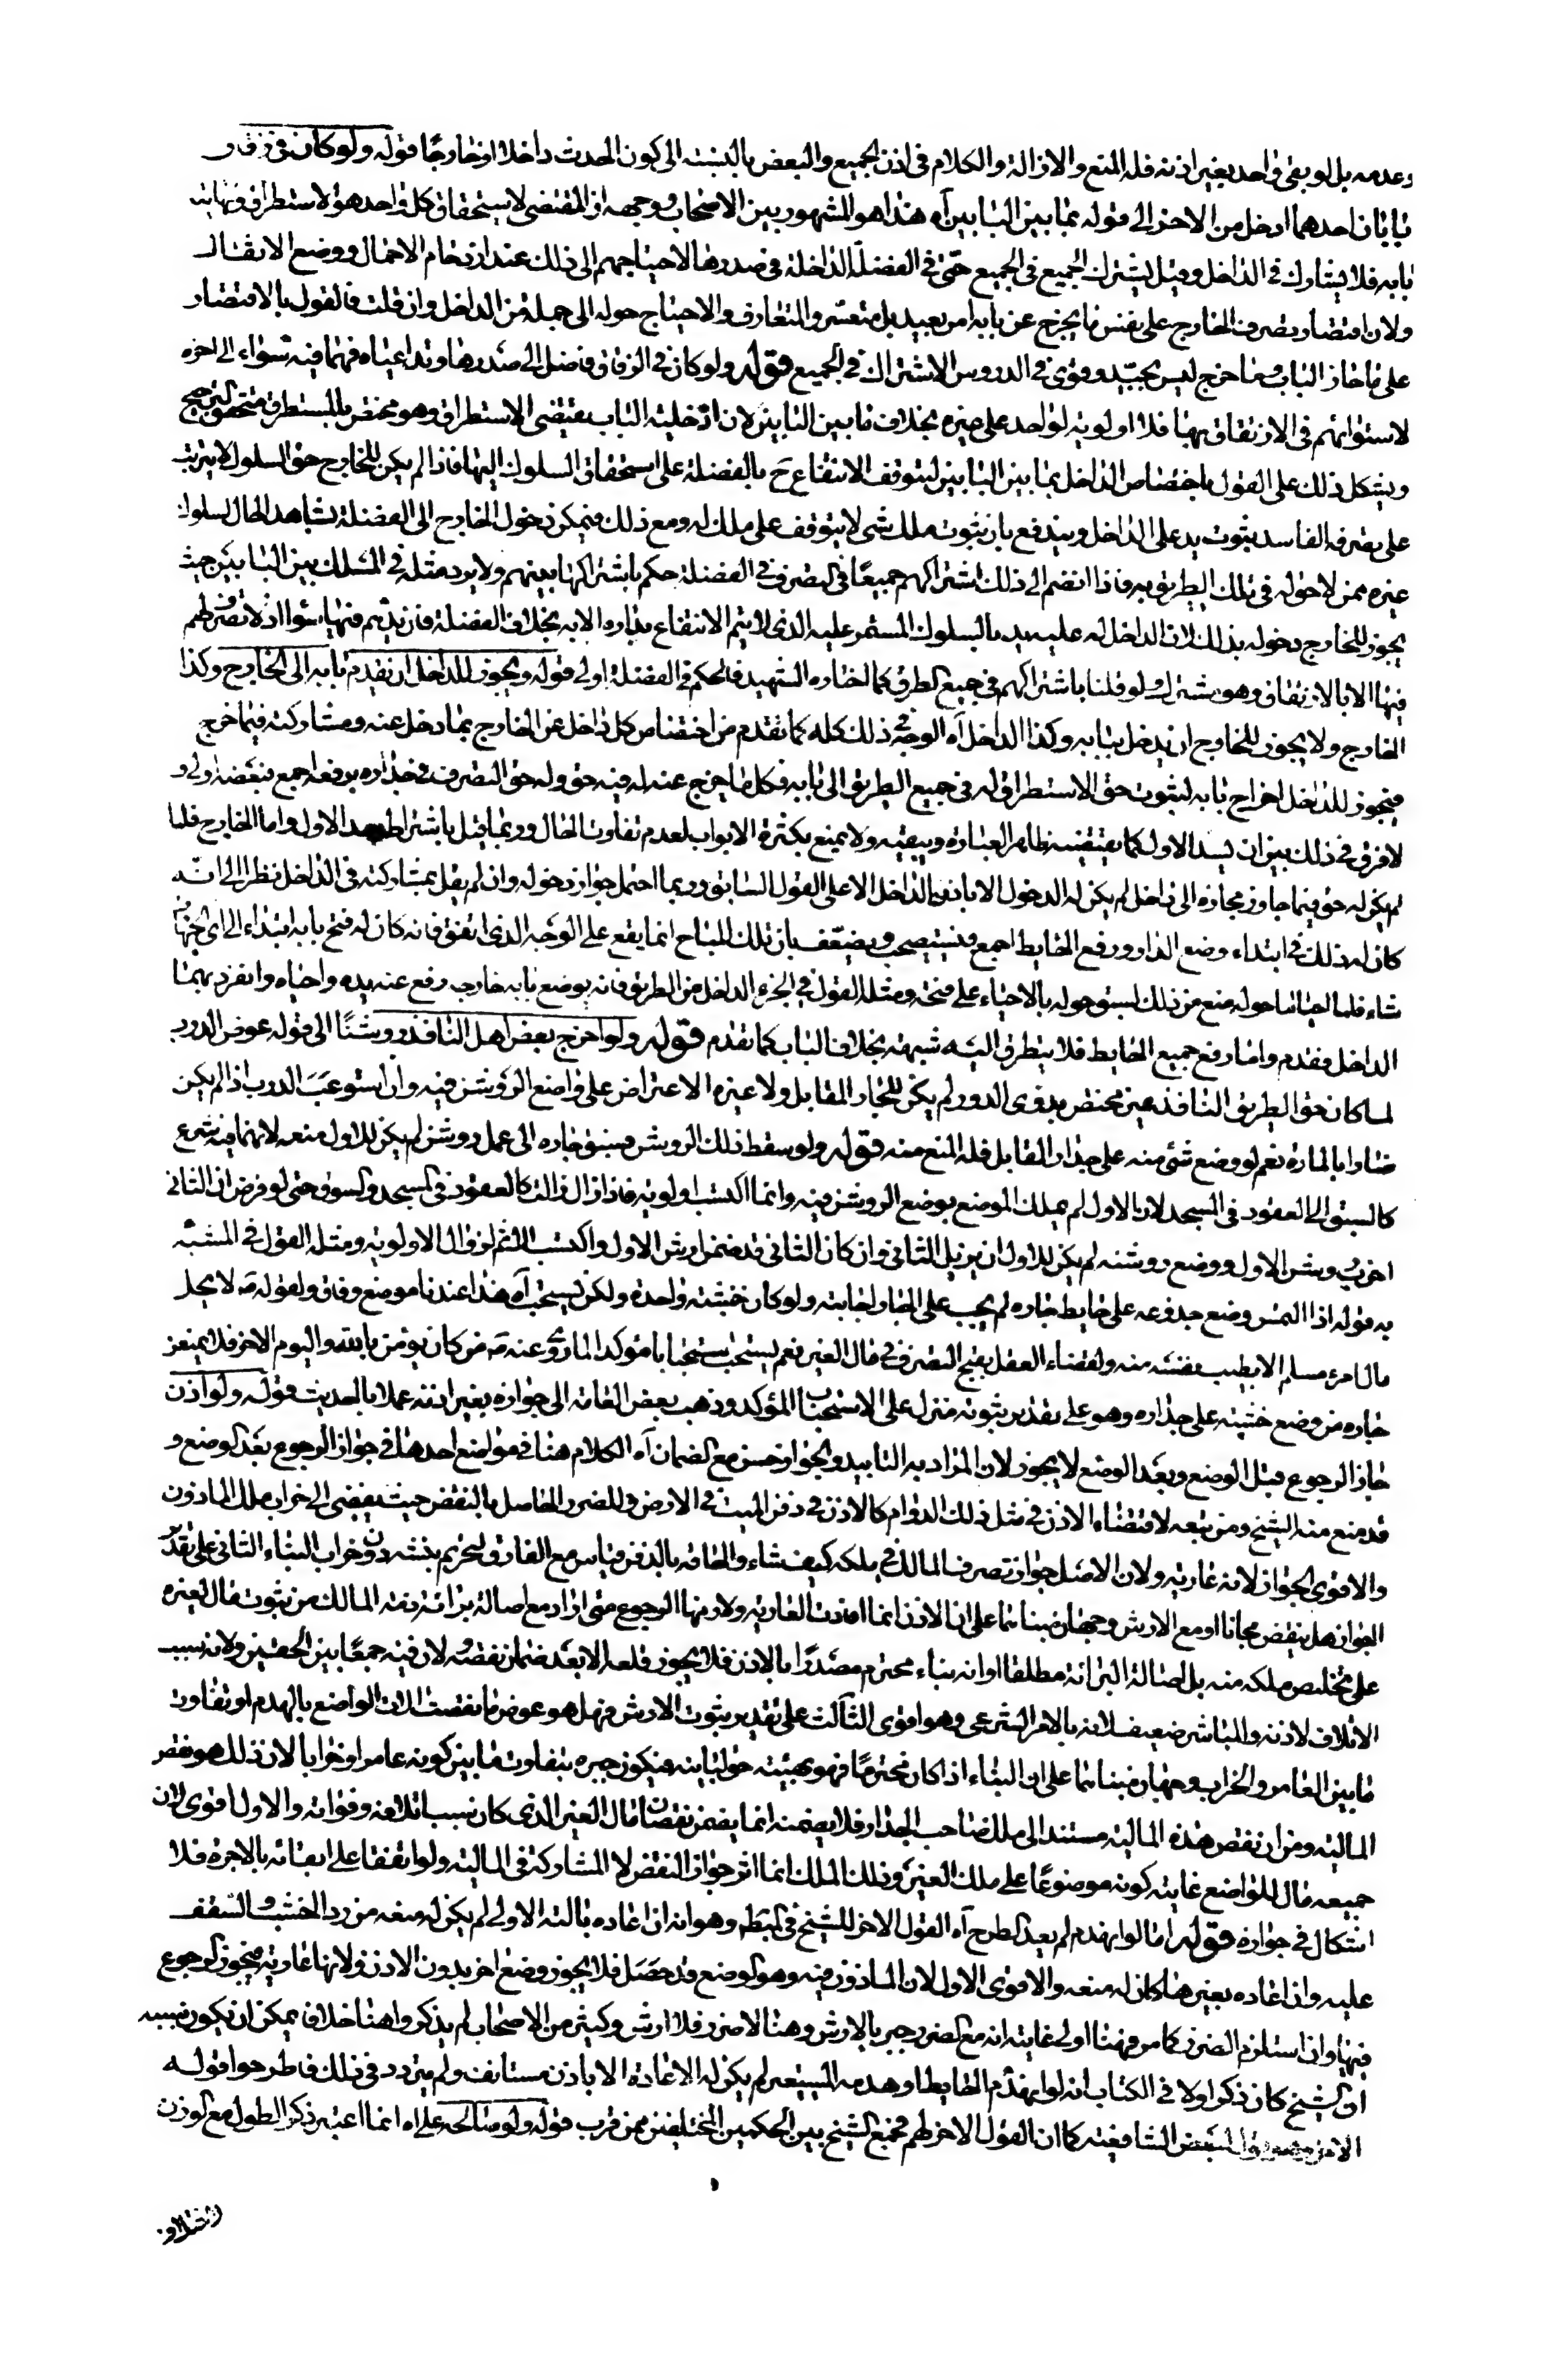 وعدمه بل لو بقى واحد بغير اذنه فله المنع والازالة والكلام فى اذن الجميع والبعض بالنسبة الى كون المحدث داخلا او خارجا قوله ولو كان فى زقاق
بابان احدهما ادخل من الاخر الى قوله بما بين البابين آه هذا هو المشهور بين الاصحاب ووجهه ان المقتضى لاستحقاق كل واحد هو لاستطراق ونهايته
بابه فلا يشارك فى الداخل وقيل يشترك الجميع فى الجميع حتى فى الفضلة الداخلة فى صدرها لاحتياجهم الى ذلك عند ازدحام الاحمال ووضع الاثقال
ولان اقتصار تصرف الخارج على نفس ما يخرج عن بابه امر بعيد بل متعسر والمتعارف والاحتياج حوله الى جملة من الداخل وان قلت فالقول بالاقتصار
على ما حاز الباب وما خرج ليس بجيد وقوى فى الدروس الاشتراك فى الجميع قوله ولو كان فى الزقاق فاضل الى صدرها وتداعياه فهما فيه سواء الى اخره
لاستوائهم فى الارتفاق بها فلا اولوية لواحد على غيره بخلاف ما بين البابين لان ادخلية الباب يقتضى الاستطراق وهو مختص بالمستطرق فيتحقق الترجيح
ويشكل ذلك على القول باختصاص الداخل بما بين البابين لتوقف الانتفاع ح بالفضلة على استحقاق السلوك اليها فاذا لم يكن للخارج حق السلوك لا يترتب
على تصرفه الفاسد ثبوت يد على الداخل ويندفع بان ثبوت ملك شى لا يتوقف على ملك له ومع ذلك فيمكن دخول الخارج الى الفضلة بشاهد الحال كسلوك
غيره ممن لا حق له فى تلك الطريق به فاذا انضم الى ذلك اشتراكهم جميعا فى التصرف فى الفضلة حكم باشتراكها بينهم ولا يرد مثله فى المسلك بين البابين حيث
يجوز للخارج دخوله بذلك لان الداخل له عليه يد بالسلوك المستمر عليه الذى لا يتم الانتفاع بداره الا به بخلاف الفضلة فان يدهم فيها سواء اذ لا تصرف لهم
فيها الا بالارتفاق وهو مشترك ولو قلنا باشتراكهم فى جميع الطرق كما اختاره الشهيد فالحكم فى الفضلة اولى قوله ويجوز للداخل ان يقدم بابه الى الخارج وكذا
الخارج ولا يجوز للخارج ان يدخل ببابه وكذا الداخل آه الوجه فى ذلك كله كما تقدم من اختصاص كل داخل عن الخارج بما دخل عنه ومشاركته فيما خرج
فيجوز للداخل اخراج بابه لثبوت حق الاستطراق له فى جميع الطريق الى بابه فكل ما خرج عنه له فيه حق وله حق التصرف فى جداره برفعه اجمع فبعضه اولى و
لا فرق فى ذلك بين ان يسد الاول كما يقتضيه ظاهر العبارة ويبقيه ولا يمنع بكثرة الابواب لعدم تفاوت الحال وربما قيل باشتراط سد الاول واما الخارج فلما
لم يكن له حق فيما جاوز مجازه الى داخل لم يكن له الدخول الا باذن الداخل الا على القول السابق وربما احتمل جواز دخوله وان لم يقل بمشاركته فى الداخل نظرا الى انه
كان له ذلك فى ابتداء وضع الدار ورفع الحايط اجمع فيستصحب ويضعف بان تلك المباح انما يقع على الوجه الذى اتفق فانه كان له فتح بابه ابتداء الى اى جهة
شاء فلما احيا ما حوله منع من ذلك لسبق حوله بالاحياء على فتحه ومثله القول فى الجزء الداخل من الطريق فانه بوضع بابه خارجه رفع عنه يده واحياه وانفرد بهما
الداخل فقدم واما رفع جميع الحايط فلا يتطرق اليه شبهة بخلاف الباب كما تقدم قوله ولو اخرج بعض اهل النافذ روشنا الى قوله عرض الدرب
لما كان حق الطريق النافذ غير مختص بذوى الدور لم يكن للجار المقابل ولا غيره الاعتراض على واضع الروشن فيه وان استوعب الدرب اذا لم يكن
ضارا بالمارة نعم لو وضع شئى منه على جدار المقابل فله المنع منه قوله ولو سقط ذلك الروشن فسبق جاره الى عمل روشن لم يكن للاول منعه لانهما فيه شرع
كالسبق الى القعود فى المسجد لان الاول لم يملك الموضع بوضع الروشن فيه وانما اكتسب اولوية فاذا زال زالت كالقعود فى المسجد والسوق حتى لو فرض ان الثانى
اخرب روشن الاول ووضع روشنه لم يكن للاول ان يزيل الثانى وان كان الثانى قد ضمن ارش الاول واكتسب الاثم لزوال الاولوية ومثله القول فى المشبه
به قوله اذا التمس وضع جذوعه على حايط جاره لم يجب على الجار اجابته ولو كان خشبة واحدة ولكن يستحب آه هذا عندنا موضع وفاق ولقوله ص لا يحل
مال امرء مسلم الا بطيب نفسه منه ولقضاء العقل بقبح التصرف فى مال الغير نعم يستحب استحبابا مؤكدا لما روى عنه ص من كان يؤمن بالله واليوم الاخر فلا يمنعن
جاره من وضع خشبة على جداره وهو على تقدير ثبوته منزل على الاستحباب المؤكد وذهب بعض العامة الى جوازه بغير اذنه عملا بالحديث قوله ولو اذن
جاز الرجوع قبل الوضع وبعد الوضع لا يجوز لان المراد به التابيد والجواز حسن مع الضمان آه الكلام هنا فى مواضع احدها فى جواز الرجوع بعد الوضع و
قد منع منه الشيخ ومن تبعه لاقتضاء الاذن فى مثل ذلك الدوام كالاذن فى دفن الميت فى الارض وللضرر الحاصل بالنقض حيث يفضى الى خراب ملك الماذون
والاقوى الجواز لانه عارية ولان الاصل جواز تصرف المالك فى ملكه كيف شاء والحاقه بالدفن قياس مع الفارق لتحريم نبشه دون خراب البناء الثانى على تقدير
الجواز هل ينقض مجانا او مع الارش وجهان مبنيان على ان الاذن انما افادت العارية ولازمها الرجوع متى اراد مع اصالة برائة ذمة المالك من ثبوت مال لغيره
على تخليص ملكه منه بل اصالة البرائة مطلقا او انه بناء محترم مصدرا بالاذن فلا يجوز قلعه الا بعد ضمان نقصه لان فيه جمعا بين الحقين ولانه سبب
الاتلاف لاذنه والمباشر ضعيف لانه بالامر الشرعى وهو اقوى الثالث على تقدير ثبوت الارش فهل هو عوض ما نقصت الات الواضع بالهدم او تفاوت
ما بين العامر والخراب وجهان مبنيان على ان البناء اذا كان محترما فهو بهيئته حق لبانيه فيكون جبره بتفاوت ما بين كونه عامرا وخرابا لان ذلك هو نقص
المالية ومن ان نقص هذه المالية مستند الى ملك صاحب الجدار فلا يضمنه انما يضمن نقصان مال الغير الذى كان سبب اتلافه وفواته والاول اقوى لان
جميعه مال للواضع غايته كونه موضوعا على ملك الغير وذلك الملك انما اثر جواز النقض لا المشاركة فى المالية ولو اتفقا على ابقائه بالاجرة فلا
اشكال فى جوازه قوله اما لو انهدم لم يعد الطرح آه القول الاخر للشيخ فى المبسوط وهو انه ان اعاده بالته الاولى لم يكن له منعه من رد الخشب والسقف
عليه وان اعاده بغيرها كان له منعه والاقوى الاول لان الماذون فيه وهو الوضع قد حصل فلا يجوز وضع اخر بدون الاذن ولانها عارية فيجوز الرجوع
فيها وان استلزم الضرر كما مر فهنا اولى غايته انه مع الضرر جبر بالارش وهنا لا ضرر فلا ارش وكثير من الاصحاب لم يذكروا هنا خلاف يمكن ان يكون سببه
ان الشيخ كان ذكر اولا فى الكتاب انه لو انهدم الحايط او هدمه المستعير لم يكن له الاعادة الا باذن مستانف ولم يتردد فى ذلك فاطرحوا قوله
الاخر لبعض الشافعية كما ان القول الاخر لهم فجمع الشيخ بين الحكمين المختلفين ممن قرب قوله ولو صالحه على اه انما اعتبر ذكر الطول مع الوزن